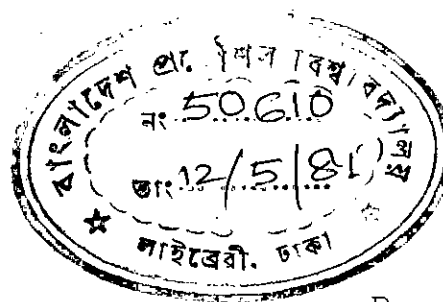 বাংলাদেশ প্রকৌশল বিশ্ববিদ্যালয়
নং 50610
তাং 12/5/81
লাইব্রেরী, ঢাকা